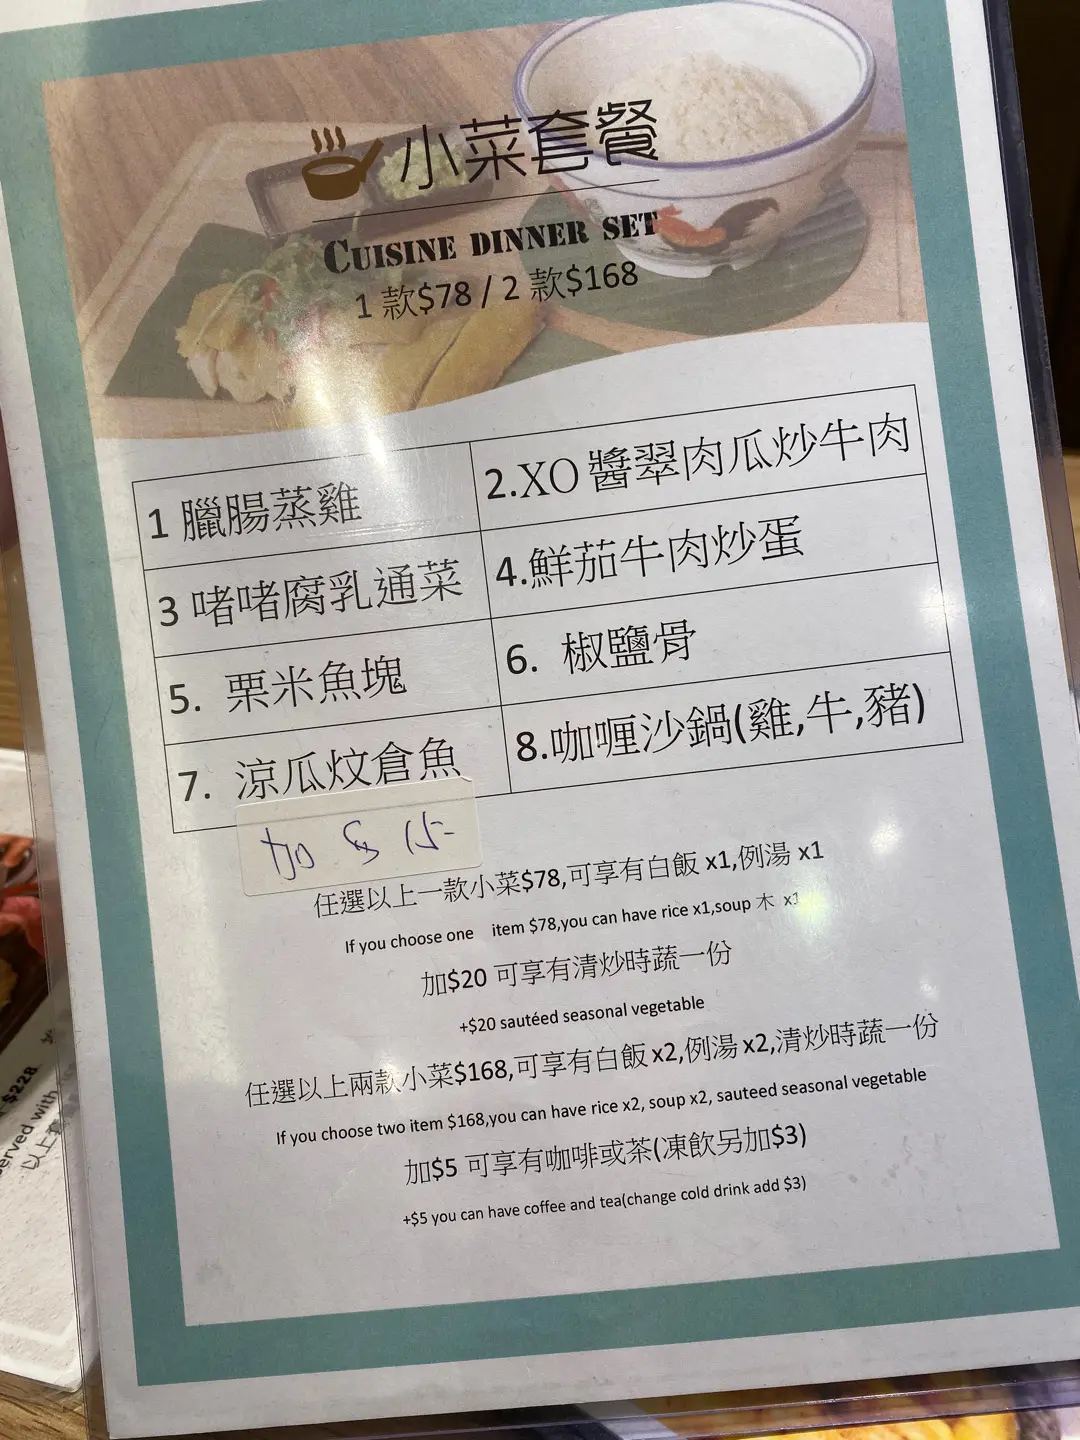 小菜套餐
CUISINE DINNER SET
1 款$78 / 2 款$168
1 臘腸蒸雞
2.XO 醬翠肉瓜炒牛肉
3 啫啫腐乳通菜
4.鮮茄牛肉炒蛋
5. 粟米魚塊
6. 椒鹽骨
7. 涼瓜炆倉魚
8.咖喱沙鍋(雞,牛,豬)
加 $ 15-
任選以上一款小菜$78,可享有白飯 x1,例湯 x1
If you choose one item $78,you can have rice x1,soup 木 x1
加$20 可享有清炒時蔬一份
+$20 sautéed seasonal vegetable
任選以上兩款小菜$168,可享有白飯 x2,例湯 x2,清炒時蔬一份
If you choose two item $168,you can have rice x2, soup x2, sauteed seasonal vegetable
加$5 可享有咖啡或茶(凍飲另加$3)
+$5 you can have coffee and tea(change cold drink add $3)
$228
erved with
以上